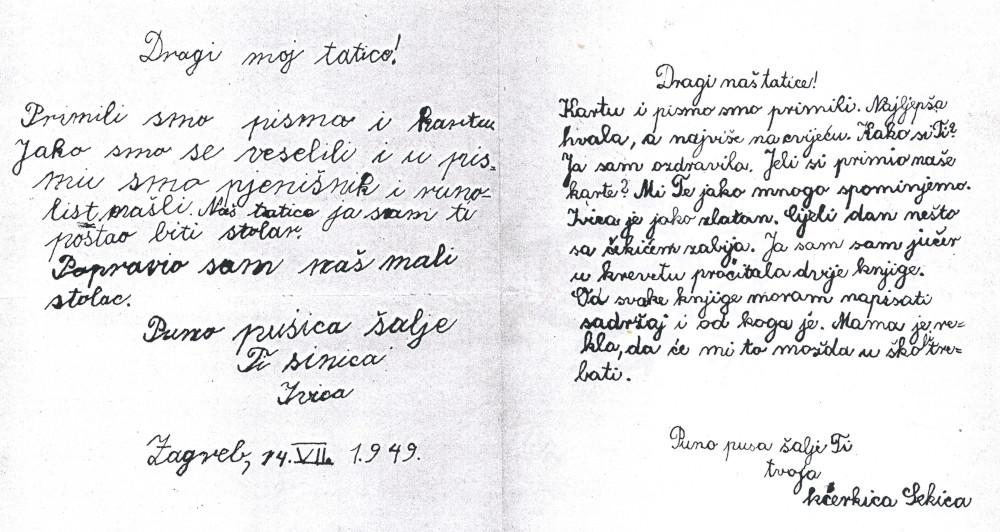 Dragi moj tatico!
Primili smo pisma i kartu
Jako smo se veselili i u pis-
mu smo pjenišnik i runo-
list našli. Naš tatico ja sam ti
poštao biti stolar.
Popravio sam naš mali
stolac.
Puno pušica šalje
Ti sinica
Ivica
Zagreb, 14. VII. 1.949.
Dragi naš tatice!
Kartu i pismo smo primili. Najljepša
hvala, a najviše na cvijeću. Kako si Ti?
Ja sam ozdravila. Jeli si primio naše
karte? Mi Te jako mnogo spominjemo.
Ivica je jako zlatan. Cijeli dan nešto
sa čekićem zabija. Ja sam sam jučer
u krevetu pročitala dvije knjige.
Od svake knjige moram napisati
sadržaj i od koga je. Mama je re-
kla, da će mi to možda u školi tre-
bati.
Puno pusa šalje Ti
tvoja
kćerkica Sekica